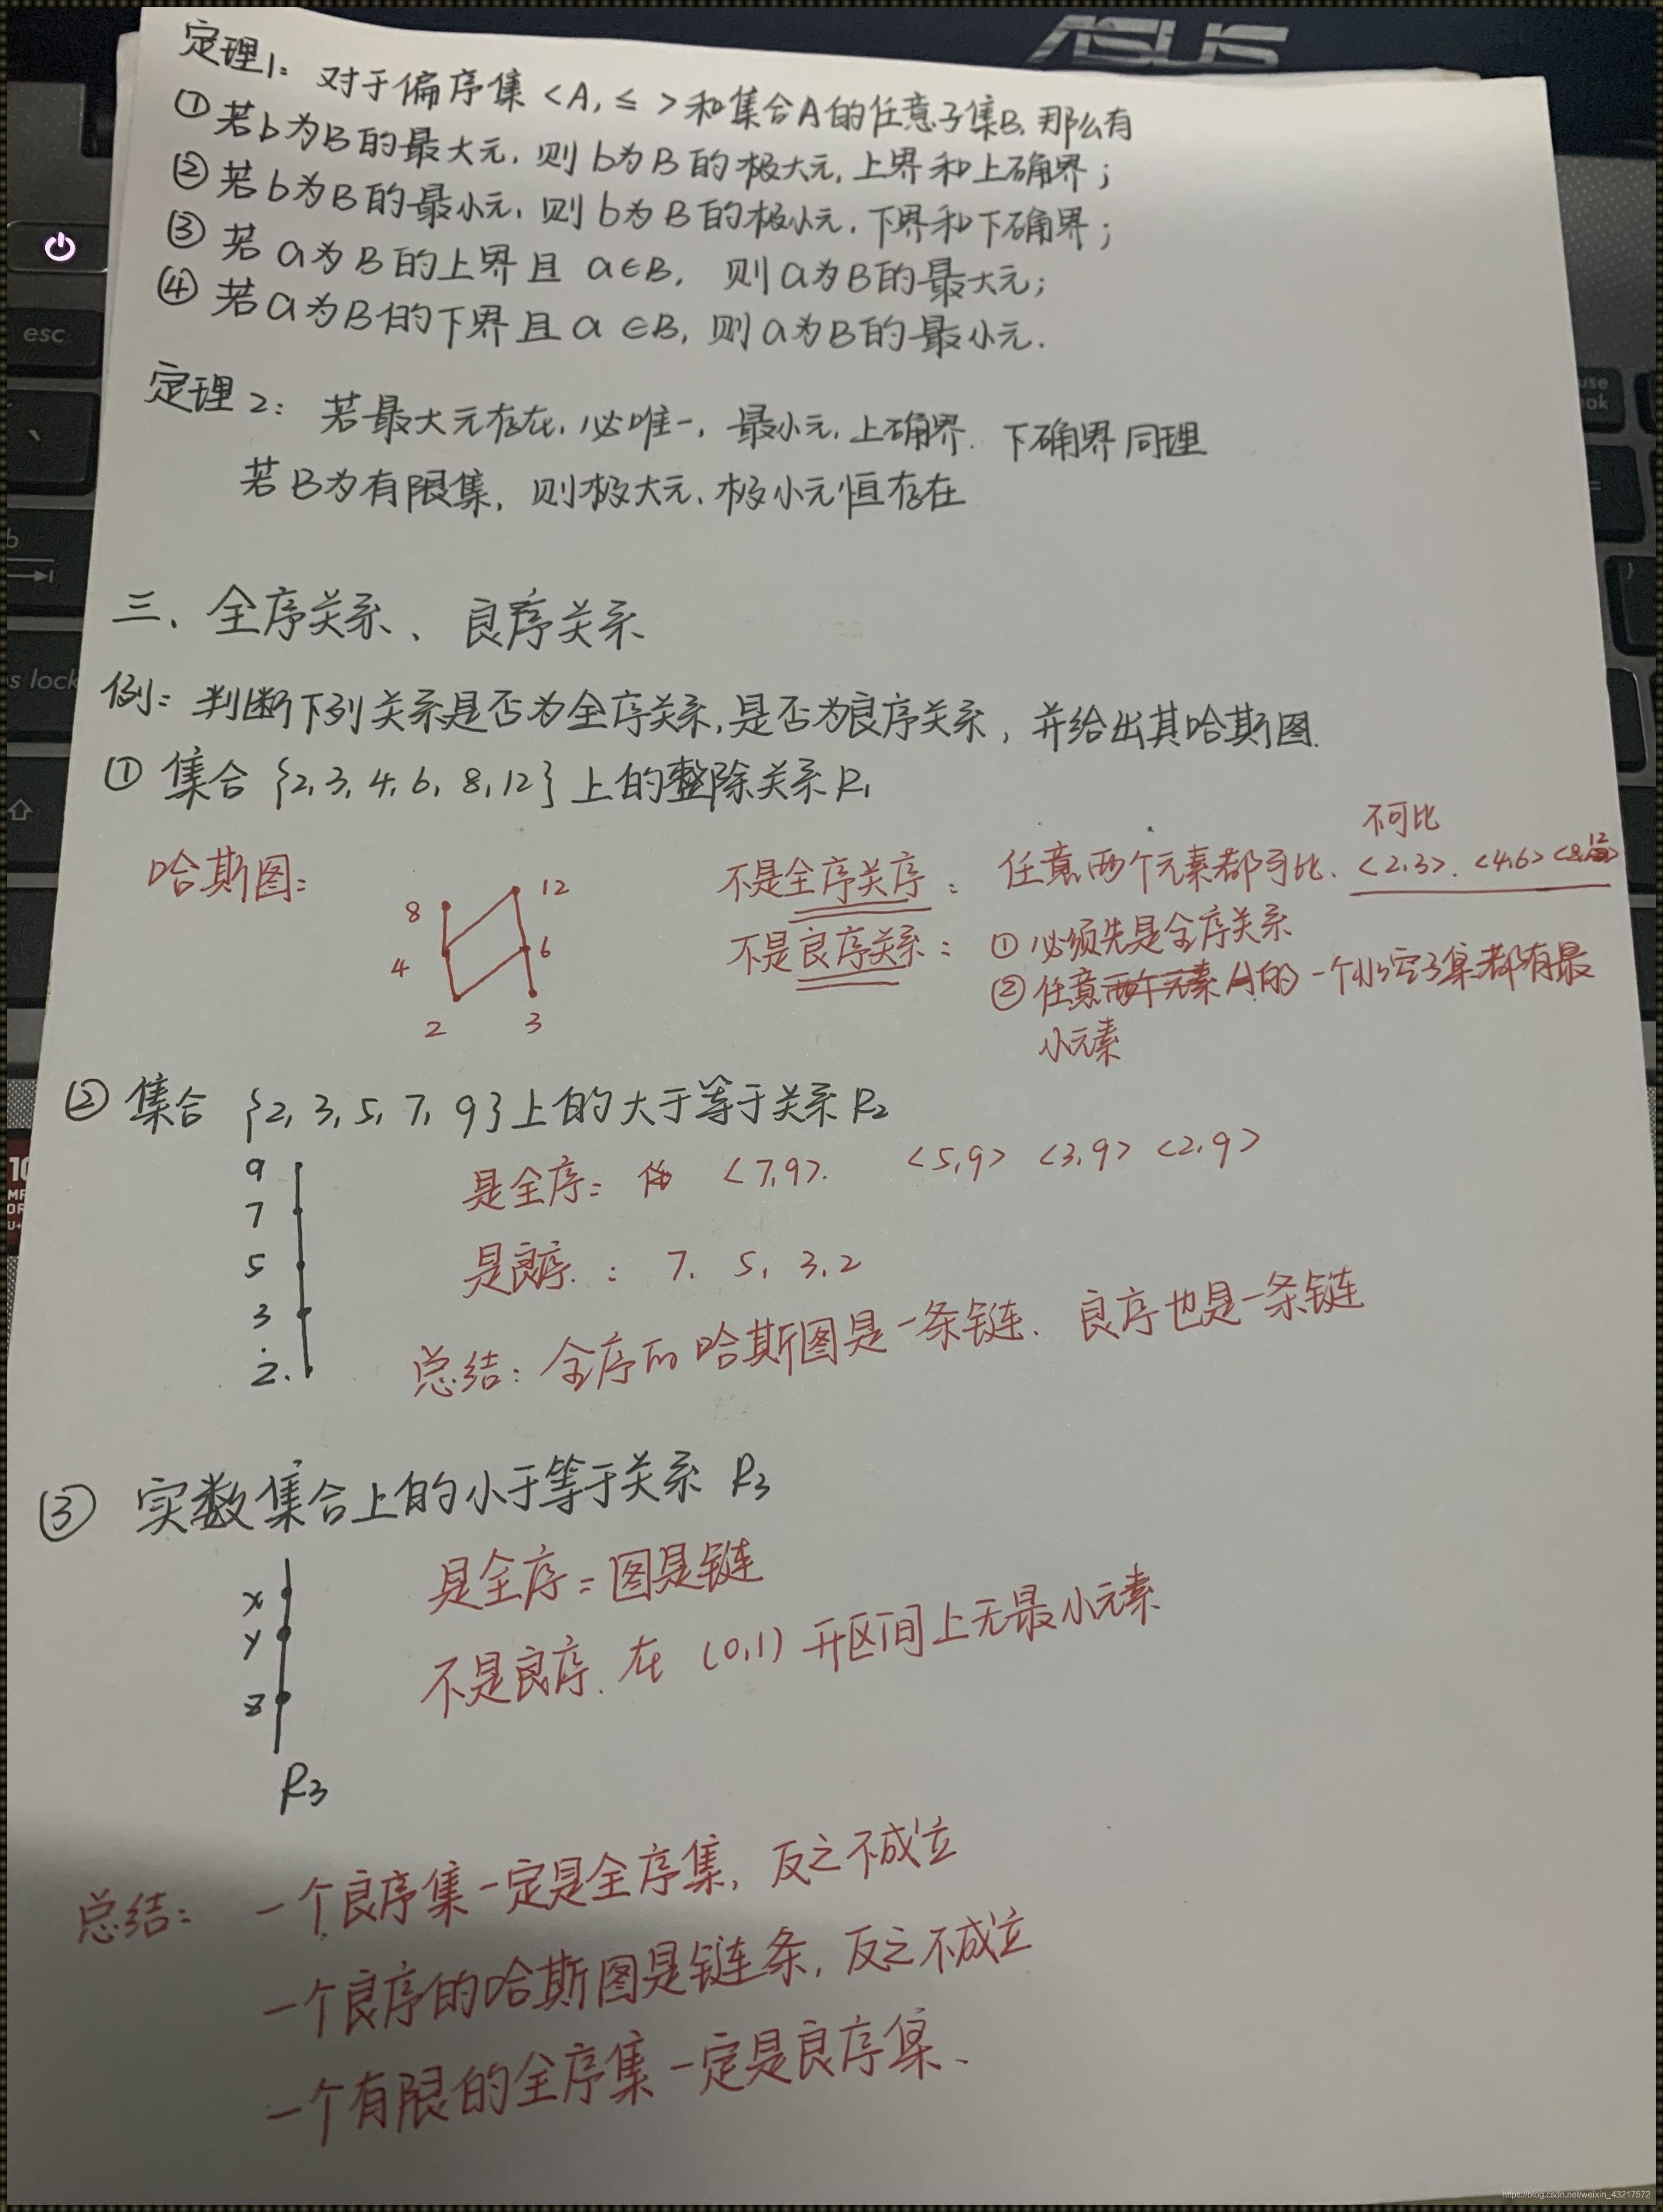 ASUS
定理1: 对于偏序集 <A, ≤ > 和集合A的任意子集B, 那么有
① 若b为B的最大元, 则b为B的极大元, 上界和上确界;
② 若b为B的最小元, 则b为B的极小元, 下界和下确界;
③ 若a为B的上界且 a∈B, 则a为B的最大元;
④ 若a为B的下界且a∈B, 则a为B的最小元.
定理2: 若最大元存在, 必唯一, 最小元, 上确界. 下确界同理
若B为有限集, 则极大元、极小元恒存在
三、全序关系、良序关系
例: 判断下列关系是否为全序关系, 是否为良序关系, 并给出其哈斯图.
① 集合 {2,3,4,6,8,12} 上的整除关系R₁
哈斯图:
8
12
4
6
2
3
不可比
不是全序关序: 任意两个元素都可比. <2,3>. <4,6> <8,12>
不是良序关系: ① 必须先是全序关系
② 任意 A的一个非空子集都有最
小元素
② 集合 {2, 3, 5, 7, 9} 上的大于等于关系R₂
9
7
5
3
2.
是全序: <7,9>. <5,9> <3,9> <2,9>
是良序.: 7. 5, 3,2
总结: 全序的哈斯图是一条链. 良序也是一条链
③ 实数集合上的小于等于关系 R₃
x
y
z
R₃
是全序: 图是链
不是良序. 在 (0,1) 开区间上无最小元素
总结: 一个良序集一定是全序集, 反之不成立
一个良序的哈斯图是链条, 反之不成立
一个有限的全序集一定是良序集、
esc
s lock
https://blog.csdn.net/weixin_43217572